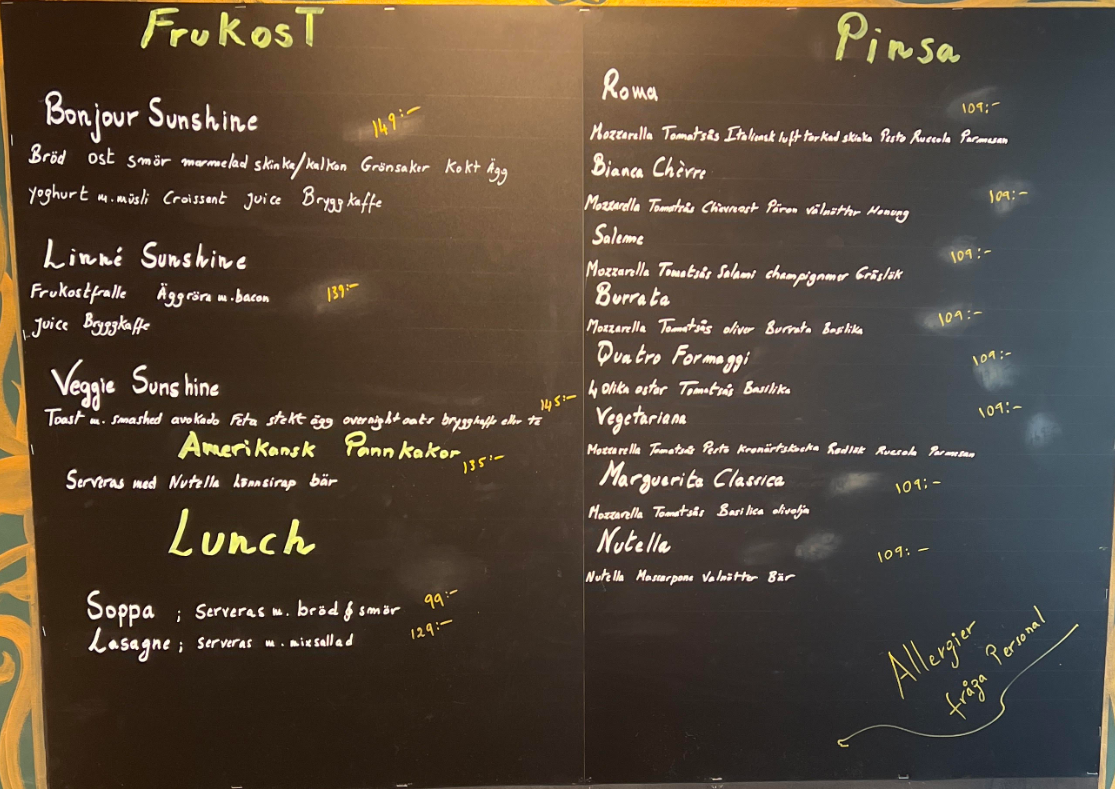 Frukost
Bonjour Sunshine 149:-
Bröd ost smör marmelad skinka/kalkon Grönsaker Kokt Ägg
Yoghurt m.müsli Croissant Juice Bryggkaffe
Linné Sunshine
Frukostfralle Äggröra m.bacon 139:-
Juice Bryggkaffe
Veggie Sunshine
Toast m. smashed avokado Feta stekt ägg overnight oats bryggkaffe eller te 145:-
Amerikansk Pannkakor 135:-
Serveras med Nutella Lönnsirap bär
Lunch
Soppa ; Serveras m. bröd & smör 99:-
Lasagne ; Serveras m. mixsallad 129:-
Pinsa
Roma 109:-
Mozzarella Tomatsås Italiensk lufttorkad skinka Pesto Ruccola Parmesan
Bianca Chèvre 109:-
Mozzarella Tomatsås Chevreost Päron Valnötter Honung
Salame 109:-
Mozzarella Tomatsås Salami champignoner Gräslök
Burrata 109:-
Mozzarella Tomatsås oliver Burrata Basilika
Quatro Formaggi 109:-
4 Olika ostar Tomatsås Basilika
Vegetariana 109:-
Mozzarella Tomatsås Pesto Kronärtskocka Rödlök Ruccola Parmesan
Marguerita Classica 109:-
Mozzarella Tomatsås Basilica olivolja
Nutella 109:-
Nutella Mascarpone Valnötter Bär
Allergier
fråga Personal